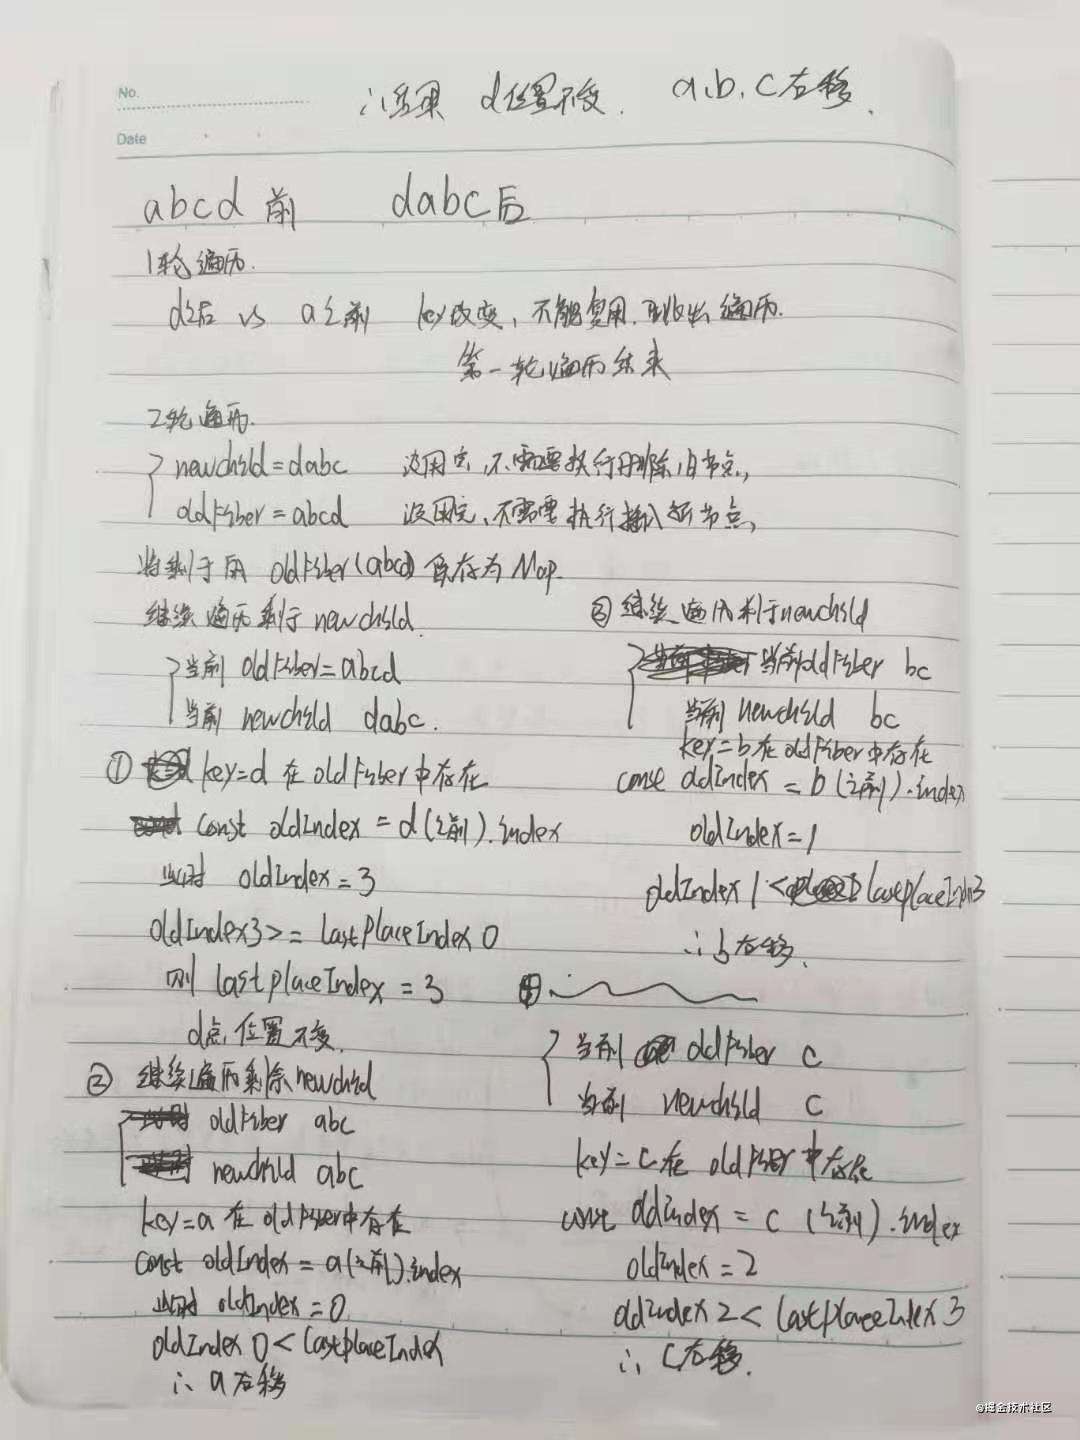 No.
Date
∴结果 d位置不变. a、b、c右移.
abcd 前 dabc 后
1轮遍历.
d之后 vs a之前 key改变,不能复用,跳出遍历.
第一轮遍历结束
2轮遍历.
newchild=dabc 没用完,不需要执行删除旧节点,
oldFiber=abcd 没用完,不需要执行插入新节点,
将剩余的 oldFiber(abcd)保存为Map.
继续遍历剩于newchild.
当前 oldFiber=abcd
当前 newchild dabc.
① key=d 在 oldFiber中存在
const oldIndex = d(之前).index
此时 oldIndex = 3
oldIndex3>= lastPlaceIndex 0
则 lastplaceIndex = 3
d点 位置不变.
② 继续遍历剩余newchild
oldFiber abc
newchild abc
key=a 在 oldFiber中存在
const oldIndex = a(之前).index
此时 oldIndex=0
oldIndex 0< lastplaceIndex
∴ a右移
③ 继续遍历剩于newchild
当前oldFiber bc
当前 newchild bc
key=b 在 oldFiber中存在
const oldIndex = b(之前).index
oldIndex=1
oldIndex 1< lastplaceIndex3
∴ b右移.
④
当前 oldFiber c
当前 newchild c
key=c 在 oldFiber 中存在
const oldIndex = c (之前).index
oldIndex = 2
oldIndex 2< lastplaceIndex 3
∴ c右移.
@掘金技术社区